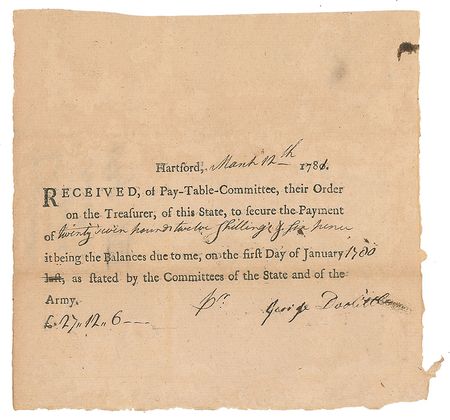 Hartford, March 12th 1781.
RECEIVED, of Pay-Table-Committee, their Order
on the Treasurer, of this State, to secure the Payment
of twenty seven pounds twelve Shillings & six pence
it being the Balances due to me, on the first Day of January 1780
last, as stated by the Committees of the State and of the
Army.
£27,,12,,6
pr. George Doolittle